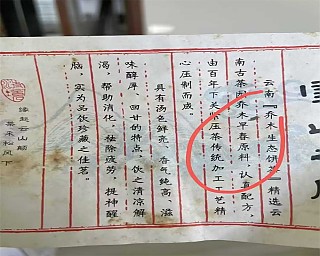 云南『乔木生态饼茶』精选云
南古茶园乔木早春原料，认真配方，
由百年下关紧压茶传统加工工艺精
心压制而成。
具有汤色鲜亮、香气纯高、滋
味醇厚、回甘的特点，饮之清凉解
渴、帮助消化、祛除疲劳、提神醒
脑，实为品饮珍藏之佳茗。
缘起云山巅
茶来松风下